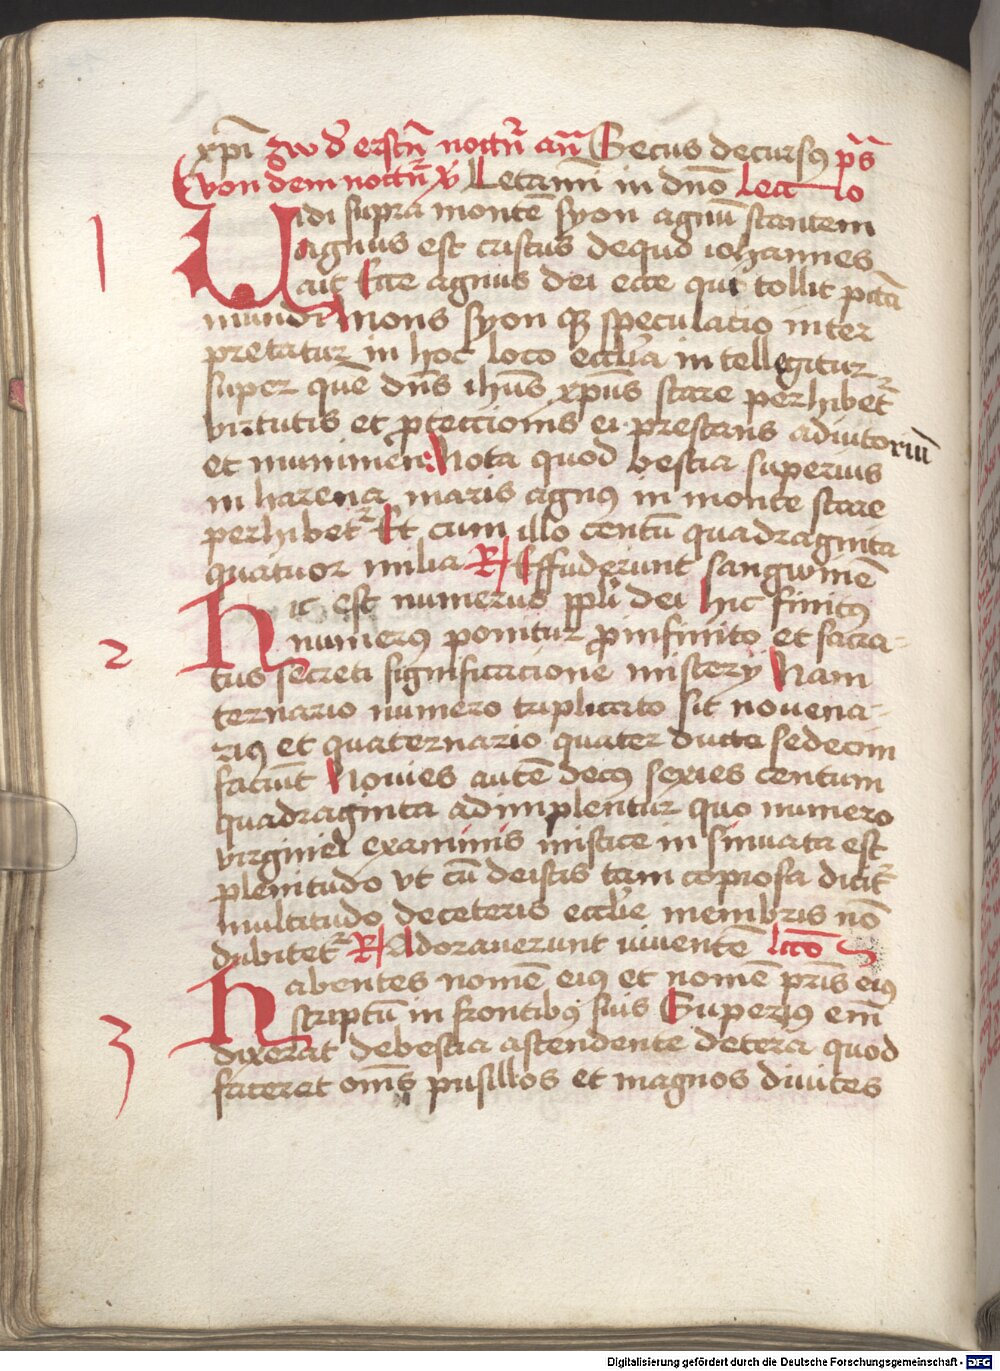 xp̄i zw d' erstn̄ nottn̄ an̄ Secus decursꝯ p̄s
von dem nottn̄ v̄ Letamī in dn̄o Lectō
1 Vidi supra montē syon agnū stantem
agnus est cristus dequo iohannes
ait Ecce agnus dei ecce qui tollit pctā
mundi mons syon qꝫ speculacio inter
pretatur in hoc loco eccl̄ia in tellegitur
super quē dn̄s ihūs xp̄us stare perhibet᷑
virtutis et ꝓteccionis ei prestans adiutoriū
et munimen Nota quod bestia superius
in harena maris agnꝯ in monte stare
perhibet᷑ Et cum illo centū quadraginta
quatuor milia R/ Effuderunt sangwinē
2 Hic est numerus pp̄li dei hic finitꝯ
numerꝯ ponitur ꝓ infinito et sacra-
tus secreti significacione mistery Nam
ternario numero triplicato fit novena-
riꝯ et quaternario quater ducta sedecim
faciūt Novies autē decꝯ sexies centum
quadraginta adimplentur quo numero
virginei examinis mistice in sinuata est
plenitudo vt cū deistis tam copiosa dicit᷑
multitudo deceteris eccl̄ie membris nō
dubitet᷑ R/ Adoraverunt viventē lcō
3 Habentes nomē eiꝯ et nomē p̄ris eiꝯ
scriptū in frontibꝯ suis Superiꝯ em̄
dixerat debestia ascendente detera quod
faceret om̄s pusillos et magnos divites
Digitalisierung gefördert durch die Deutsche Forschungsgemeinschaft - DFG